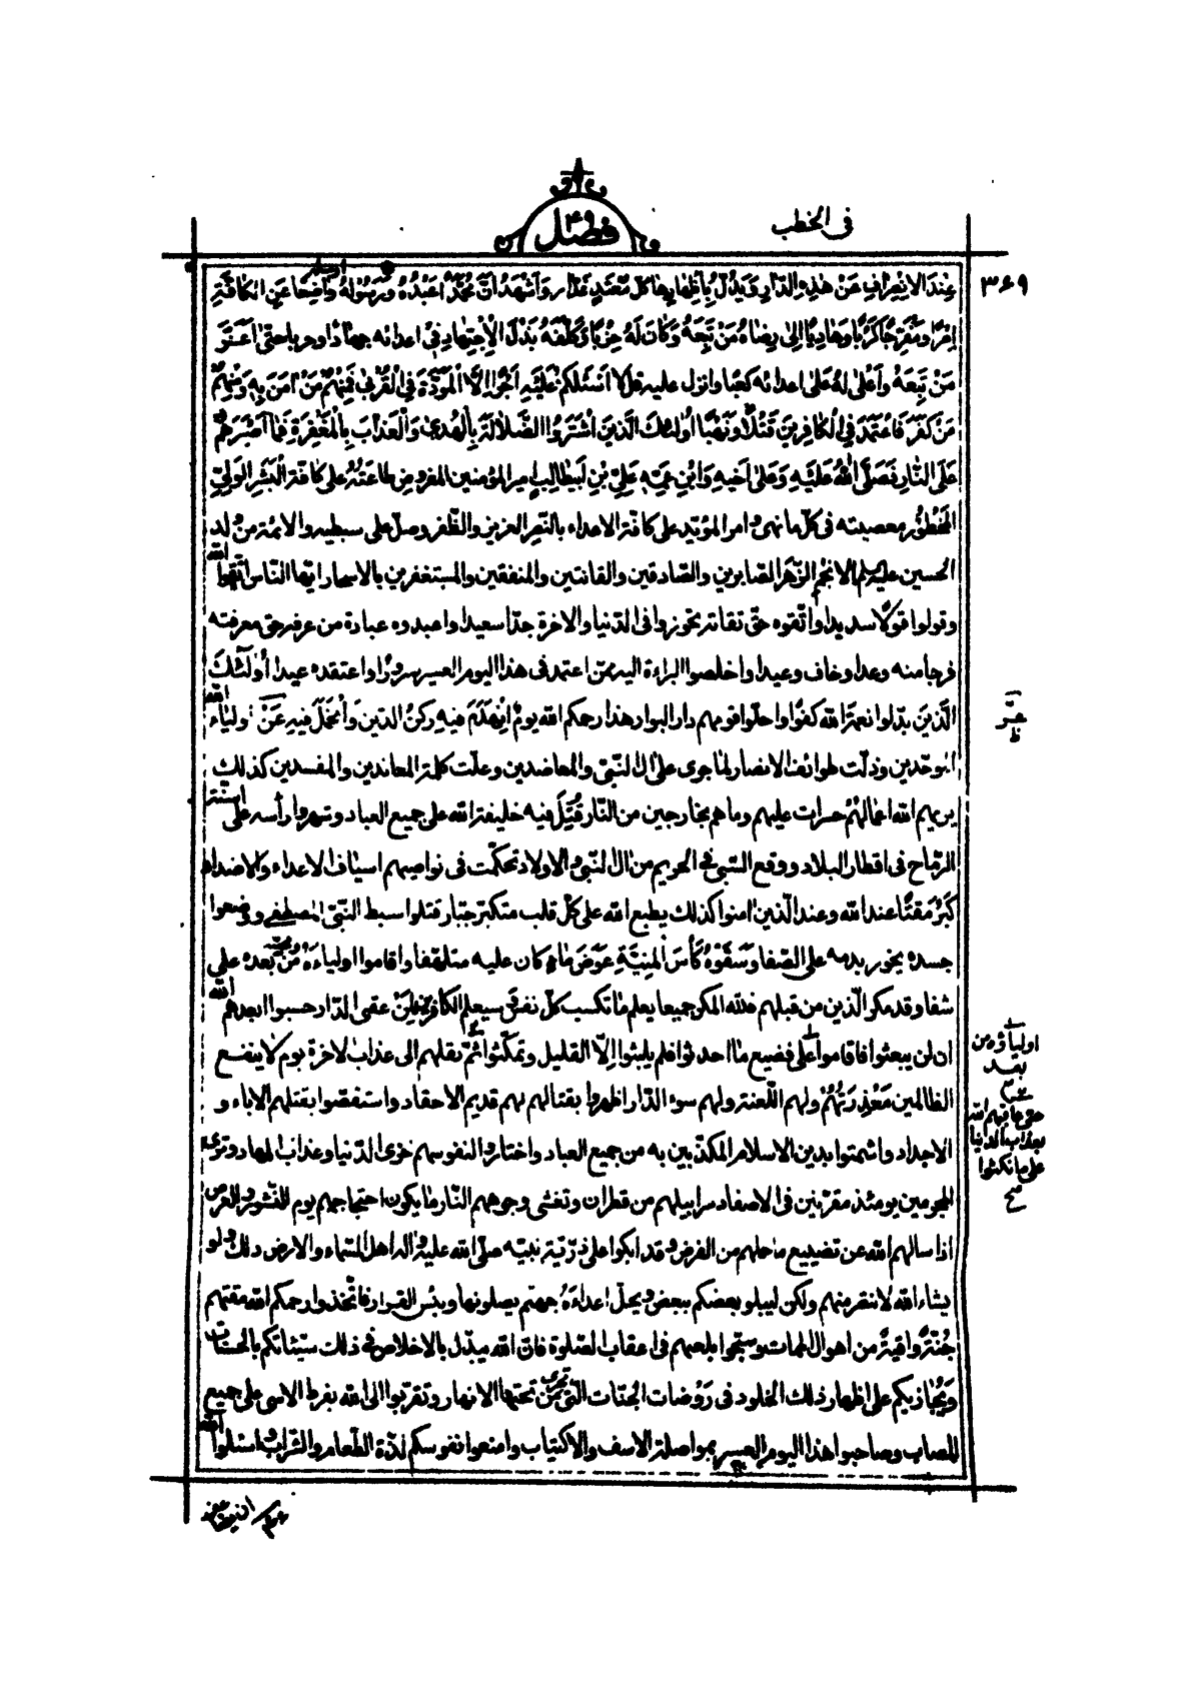 في الخطب
فصل ٤٩
٣٦٩
عِندَ الاِنصِرافِ عَنْ هٰذِهِ الدّارِ وَيَدُلُّ بِاَظهارِها كلَّ مُعْتَدٍ غَدّارٍ وَاَشهَدُ اَنَّ مُحَمَّدًا عَبْدُهُ وَرَسُولُهُ عَنِ الكافَّةِ
اِصْرًا وَمُفَرِّجًا كَرْبًا وَهادِيًا اِلىٰ رِضاهُ مَنْ تَبِعَهُ وَكانَ لَهُ حِزْبًا وَكَلَّفَهُ بَذْلَ الاِجْتِهادِ فى اعدائه جهادًا وحربا حتى
مَنْ تَبِعَهُ وَاَعْلىٰ لَهُ عَلىٰ اعدائه كعبًا وانزل عليه قل لا اَسْئَلُكُمْ عَلَيْهِ اَجْرًا اِلَّا الْمَوَدَّةَ فِي الْقُرْبىٰ فَمِنْهُمْ مَنْ اٰمَنَ بِهِ وَمِنْهُمْ
مَنْ كَفَرَ فَاعْتَمَدَ فِي الْكافِرينَ قَتْلًا وَنَهْبًا اُولٰئِكَ الَّذينَ اشْتَرَوُا الضَّلالَةَ بِالْهُدىٰ وَالْعَذابَ بِالْمَغْفِرَةِ فَما اَصْبَرَهُمْ
عَلَى النّارِ فَصَلَّى اللهُ عَلَيْهِ وَعَلىٰ اَخيهِ وَابْنِ عَمِّهِ عَلِيِّ بْنِ اَبيطالِبٍ امير المؤمنين المفروض طاعَتُهُ على كافّة الْبَشَرِ الوَلِيِّ
المَحْظُورِ معصيته فى كلّ ما نهى وامر المؤيّد على كافّة الاعداء بالنّصر العزيز والظّفر وصلّ على سبطيه والائمة من ولد
الحسين عليهم السلام الانجُم الزّهر الصّابرين والصّادقين والقانتين والمنفقين والمستغفرين بالاسحار ايّها النّاس اتّقوا الله
وقولوا قولًا سديدا واتّقوه حقّ تقاته تحوزوا فى الدّنيا والاخرة جدّا سعيدا واعبدوه عبادة من عرفه حقّ معرفته
فرجا منه وعدا وخاف وعيدا واخلصوا البراءة اليه ممّن اعتمد فى هذا اليوم العسير سرورًا واعتقده عيدا اُولٰئِكَ
الَّذينَ بدّلوا نعمة الله كفرًا واحلّوا قومهم دار البوار هذا رحمكم الله يومٌ اِنْهَدَمَ فيهِ رُكنُ الدّينِ وَ فيهِ اولياء الله
الموحّدين وذلّت طوائف الانصار لما جرى على اٰل النّبىّ والمعاضدين وعلت كلمة المعاندين والمفسدين كذٰلك
يريهم الله اعمالهُمْ حسرات عليهم وما هم بخارجين من النّار قُتِلَ فيه خليفة الله على جميع العباد وشهروا راْسه على اسنّة
الرّماح فى اقطار البلاد ووقع السّبى فى الحريم من اٰل النّبى والاولاد وتحكّمت فى نواصيهم اسياف الاعداء والاضداد
كَبُرَ مَقْتًا عند الله وعند الّذين امنوا كذلك يطبع الله على كلّ قلب متكبّر جبّار قتلوا سبط النّبىّ المصطفى ووضعوا
جسده يخور بدمه على الصّفا وَسَقَوْهُ كَأْسَ الْمَنِيَّةِ عَوَضَ ماءٍ كان عليه متلهّفا واقاموا اولياءَهُ مِنْ بعده على
شفا وقد مكر الّذين من قبلهم فلله المكر جميعا يعلم ما تكسب كلّ نفس وسيعلم الكافر لِمَنْ عقبى الدّار حسبوا الله
ان لن يبعثوا فاقاموا على فضيع ما احدثوا فلم يلبثوا اِلّا القليل وتمكّثوا ثمّ نقلهم الى عذاب الاخرة يوم لا ينفع
الظالمين مَعْذِرَتُهُمْ ولهم اللّعنة ولهم سوء الدّار اظهروا بقتالهم لهم قديم الاحقاد واستفضّوا بقتلهم الاباء و
الاجداد واشمتوا بدين الاسلام المكذّبين به من جميع العباد واختاروا لنفوسهم خزى الدّنيا وعذاب المهاد وترى
المجرمين يومئذ مقرّنين فى الاصفاد سرابيلهم من قطران وتغشى وجوههم النّار ما يكون احتجاجهم يوم النّشور والعرض
اذا سالهم الله عن تضييع ما حملهم من الفرض وقد ابكوا على ذرّيّة نبيّه صلّى الله عليه واٰله اهل السّماء والارض ذلك ولو
يشاء الله لانتقر منهم ولكن ليبلو بعضكم ببعض ويحلّ اعداءَهُ جهنّم يصلونها وبئس القرار فاتّخذوا رحمكم الله مقتهم
جُنّةً واقيةً من اهوال الممات وبلعنهم فى اعقاب الصّلوة فانّ الله مبدّل بالاخلاص فى ذلك سيّئاتكم بالحسنات
وَيُجازيكم على اظهار ذلك الخلود فى رَوْضات الجنّات الّتى تجرى من تحتها الانهار وتقرّبوا الى الله بفرط الاسى على جميع
المصاب وصاحبوا هذا اليوم العسير بمواصلة الاسف والاكتياب وامنعوا نفوسكم لذّة الطّعام والشّراب واسئلوا الله
اولياؤه من
بعد
حتى عاقبهم الله
بعذاب الدنيا
على ما نكثوا